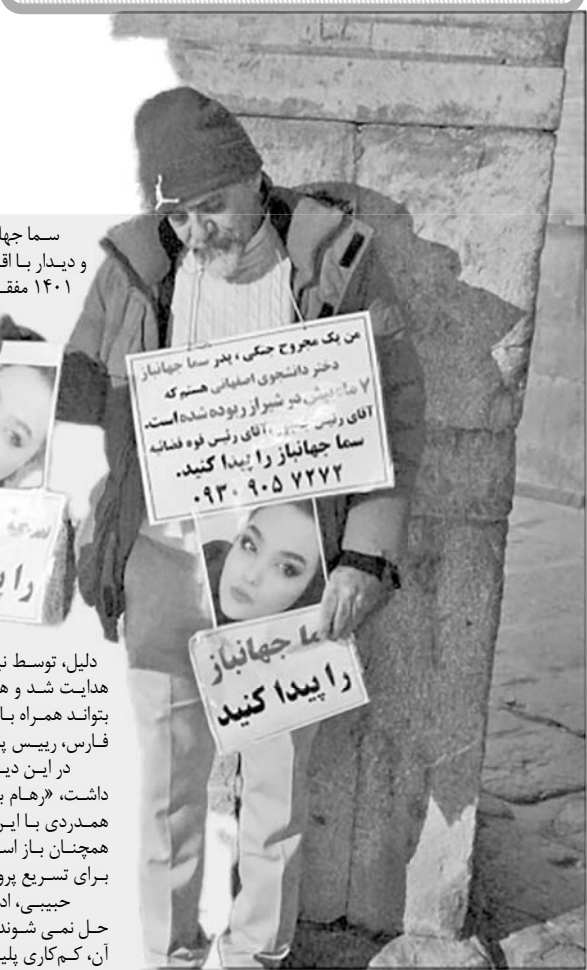 سما جها
و دیدار با اق
۱۴۰۱ مفقـ
من یک مجروح جنگی ، پدر سما جهانباز
دختر دانشجوی اصفهانی هستم که
۷ ماه پیش در شیراز ربوده شده است.
آقای رئیس آقای رئیس قوه قضائیه
سما جهانباز را پیدا کنید.
۰۹۳۰ ۹۰۵ ۷۲۷۲
ما جهانباز
را پیدا کنید
را پ
دلیل، توسط نی
هدایت شد و ه
بتواند همراه با
فارس، رییس پ
در این دید
داشت، «رهام ب
همدردی با این
همچنان باز اس
برای تسریع پرو
حبیبی، اد
حل نمی شوند
آن، کم‌کاری پلی